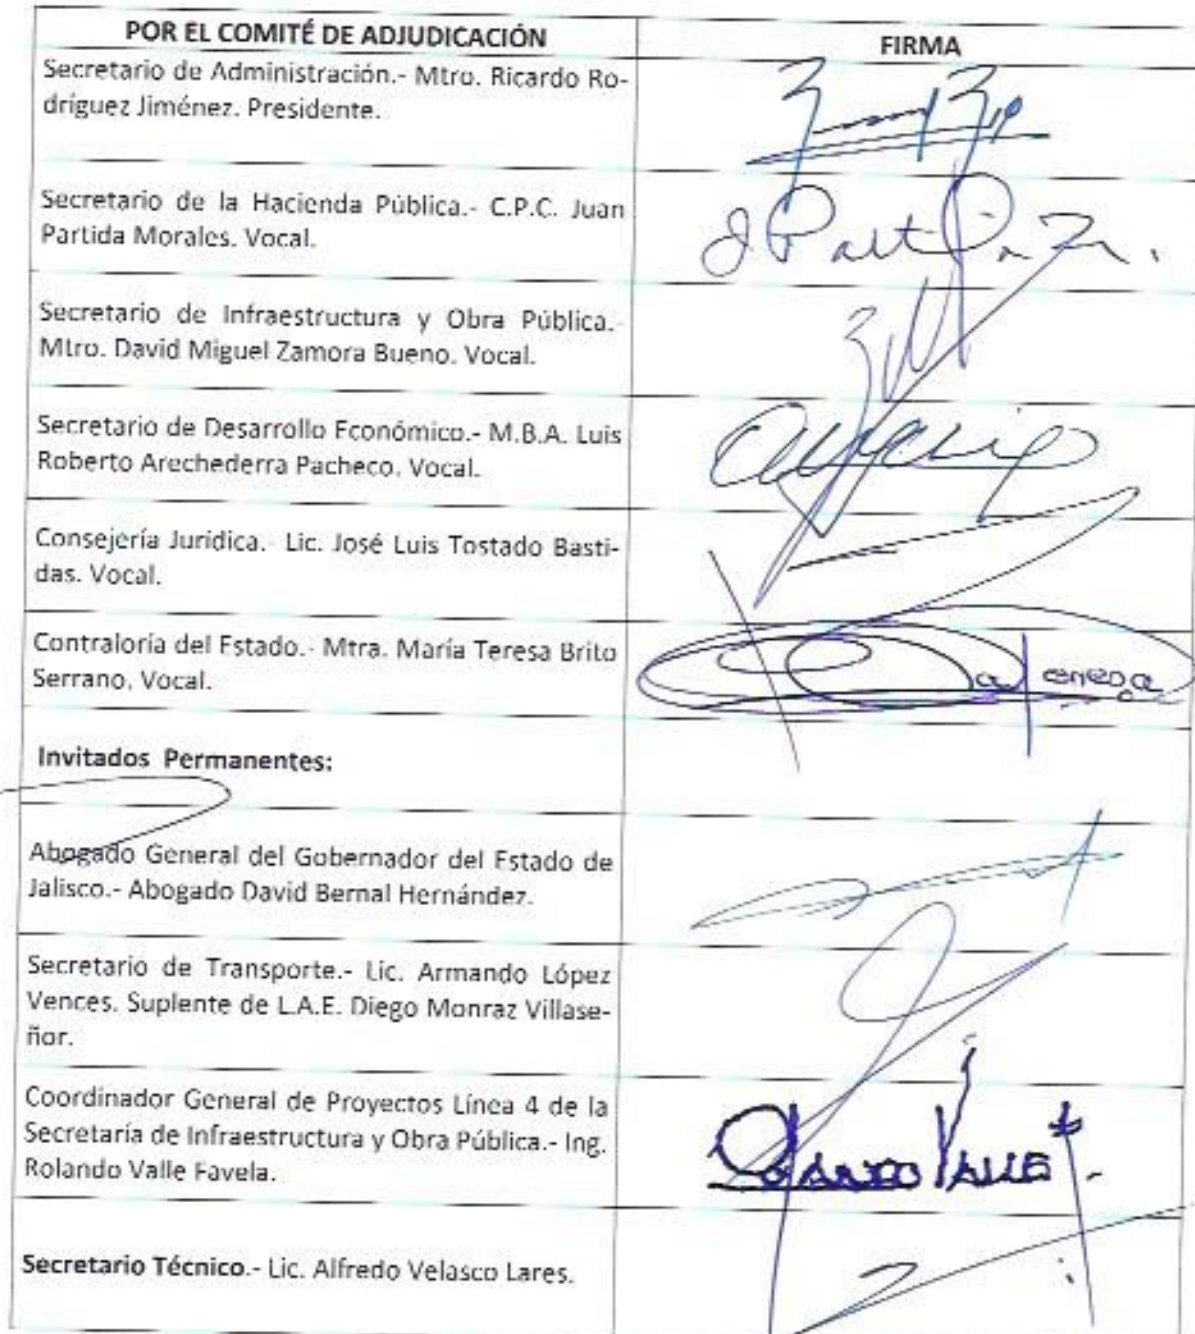 POR EL COMITÉ DE ADJUDICACIÓN
FIRMA
Secretario de Administración.- Mtro. Ricardo Ro-
dríguez Jiménez. Presidente.
Secretario de la Hacienda Pública.- C.P.C. Juan
Partida Morales. Vocal.
Secretario de Infraestructura y Obra Pública.-
Mtro. David Miguel Zamora Bueno. Vocal.
Secretario de Desarrollo Económico.- M.B.A. Luis
Roberto Arechederra Pacheco. Vocal.
Consejería Jurídica.- Lic. José Luis Tostado Basti-
das. Vocal.
Contraloría del Estado.- Mtra. María Teresa Brito
Serrano. Vocal.
Invitados Permanentes:
Abogado General del Gobernador del Estado de
Jalisco.- Abogado David Bernal Hernández.
Secretario de Transporte.- Lic. Armando López
Vences. Suplente de L.A.E. Diego Monraz Villase-
ñor.
Coordinador General de Proyectos Línea 4 de la
Secretaría de Infraestructura y Obra Pública.- Ing.
Rolando Valle Favela.
Secretario Técnico.- Lic. Alfredo Velasco Lares.